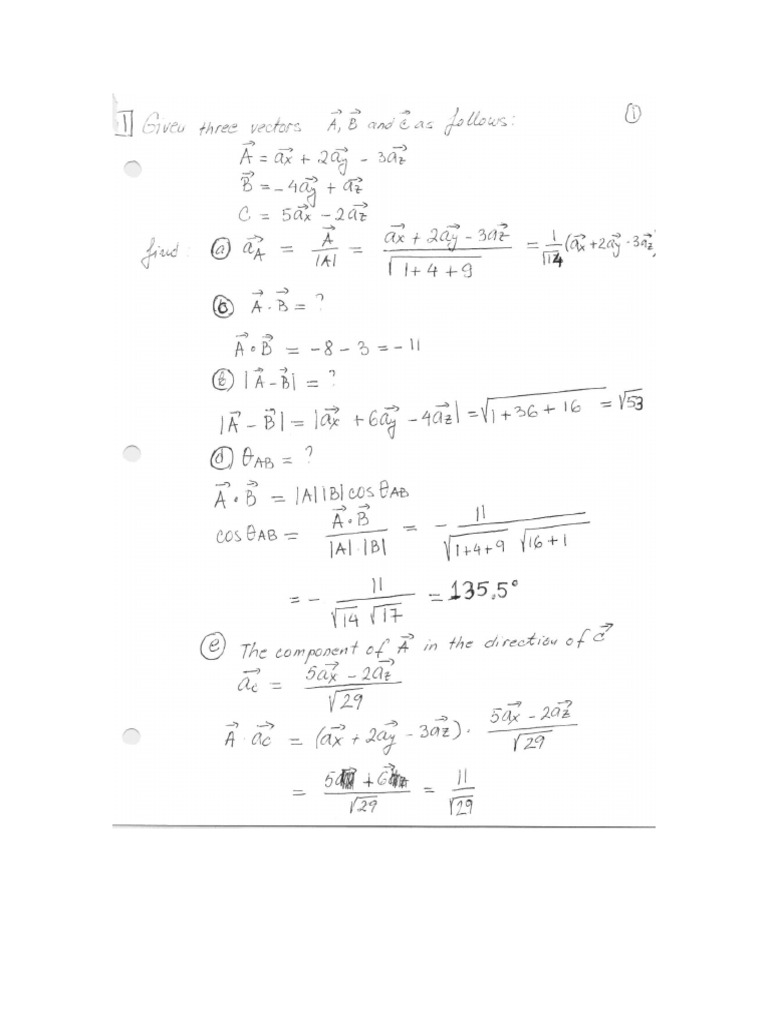 ①
1 Given three vectors A⃗, B⃗ and C⃗ as follows:
A⃗ = a⃗x + 2a⃗y - 3a⃗z
B⃗ = -4a⃗y + a⃗z
C = 5a⃗x - 2a⃗z
find: ⓐ a⃗A = A⃗/|A| = (a⃗x + 2a⃗y - 3a⃗z)/√(1+4+9) = 1/√14 (a⃗x + 2a⃗y - 3a⃗z)
ⓑ A⃗ · B⃗ = ?
A⃗ · B⃗ = -8 - 3 = -11
ⓒ |A⃗ - B⃗| = ?
|A⃗ - B⃗| = |a⃗x + 6a⃗y - 4a⃗z| = √(1+36+16) = √53
ⓓ θAB = ?
A⃗ · B⃗ = |A||B| cos θAB
cos θAB = A⃗ · B⃗/|A|·|B| = - 11/(√(1+4+9) √(16+1))
= - 11/(√14 √17) = 135.5°
ⓔ The component of A⃗ in the direction of C⃗
a⃗c = (5a⃗x - 2a⃗z)/√29
A⃗ · a⃗c = (a⃗x + 2a⃗y - 3a⃗z) · (5a⃗x - 2a⃗z)/√29
= (5 + 6)/√29 = 11/√29